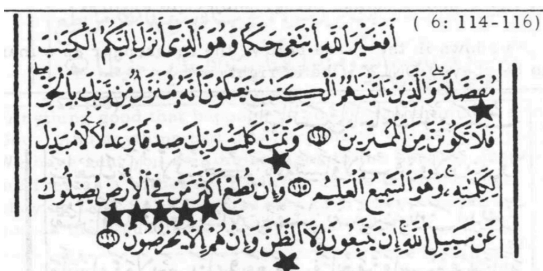 ( 6: 114-116)
أَفَغَيْرَ ٱللَّهِ أَبْتَغِى حَكَمًا وَهُوَ ٱلَّذِىٓ أَنزَلَ إِلَيْكُمُ ٱلْكِتَٰبَ
مُفَصَّلًا ۚ وَٱلَّذِينَ ءَاتَيْنَٰهُمُ ٱلْكِتَٰبَ يَعْلَمُونَ أَنَّهُۥ مُنَزَّلٌ مِّن رَّبِّكَ بِٱلْحَقِّ ۖ
فَلَا تَكُونَنَّ مِنَ ٱلْمُمْتَرِينَ ﴿١١٤﴾ وَتَمَّتْ كَلِمَتُ رَبِّكَ صِدْقًا وَعَدْلًا ۚ لَّا مُبَدِّلَ
لِكَلِمَٰتِهِۦ ۚ وَهُوَ ٱلسَّمِيعُ ٱلْعَلِيمُ ﴿١١٥﴾ وَإِن تُطِعْ أَكْثَرَ مَن فِى ٱلْأَرْضِ يُضِلُّوكَ
عَن سَبِيلِ ٱللَّهِ ۚ إِن يَتَّبِعُونَ إِلَّا ٱلظَّنَّ وَإِنْ هُمْ إِلَّا يَخْرُصُونَ ﴿١١٦﴾